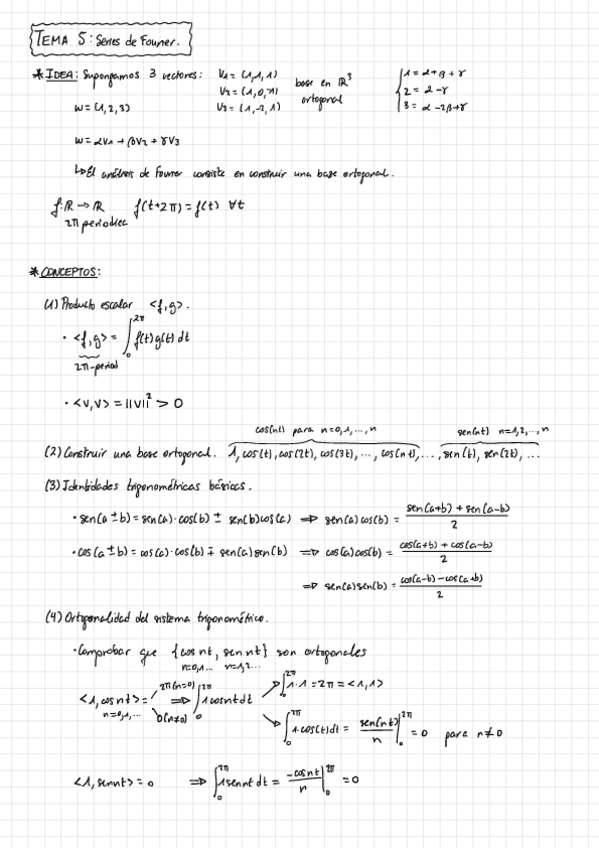 TEMA 5: Series de Fourier.
* IDEA: Supongamos 3 vectores: V₁ = (1,1,1) base en ℝ³ { 1 = α+β+γ
V₂ = (1,0,-1) ortogonal 2 = α-γ
w = (1,2,3) V₃ = (1,-2,1) 3 = α-2β+γ
w = αV₁ + βV₂ + γV₃
↳ El análisis de Fourier consiste en construir una base ortogonal.
f: ℝ → ℝ f(t+2π) = f(t) ∀t
2π periodica
* CONCEPTOS:
(1) Producto escalar <f,g>.
· <f,g> = ∫₀^2π f(t)g(t) dt
2π-period
· <v,v> = ||v||² > 0
cos(nt) para n=0,1,...,n sen(nt) n=1,2,..,n
(2) Construir una base ortogonal. 1, cos(t), cos(2t), cos(3t), ..., cos(nt), ..., sen(t), sen(2t), ...
(3) Identidades trigonométricas básicas.
· sen(a ± b) = sen(a)·cos(b) ± sen(b)cos(a) ⇒ sen(a)cos(b) = (sen(a+b) + sen(a-b))/2
· cos(a ± b) = cos(a)·cos(b) ∓ sen(a)sen(b) ⇒ cos(a)cos(b) = (cos(a+b) + cos(a-b))/2
⇒ sen(a)sen(b) = (cos(a-b) - cos(a+b))/2
(4) Ortogonalidad del sistema trigonométrico.
· Comprobar que {cos nt, sen nt} son ortogonales
n=0,1... n=1,2...
<1, cos nt> = 2π (n=0) ⇒ ∫₀^2π 1 cos nt dt → ∫₀^2π 1·1 = 2π = <1,1>
n=0,1,... 0 (n≠0) → ∫₀^2π 1·cos(t) dt = sen(nt)/n |₀^2π = 0 para n≠0
<1, sen nt> = 0 ⇒ ∫₀^2π 1 sen nt dt = -cos nt/n |₀^2π = 0